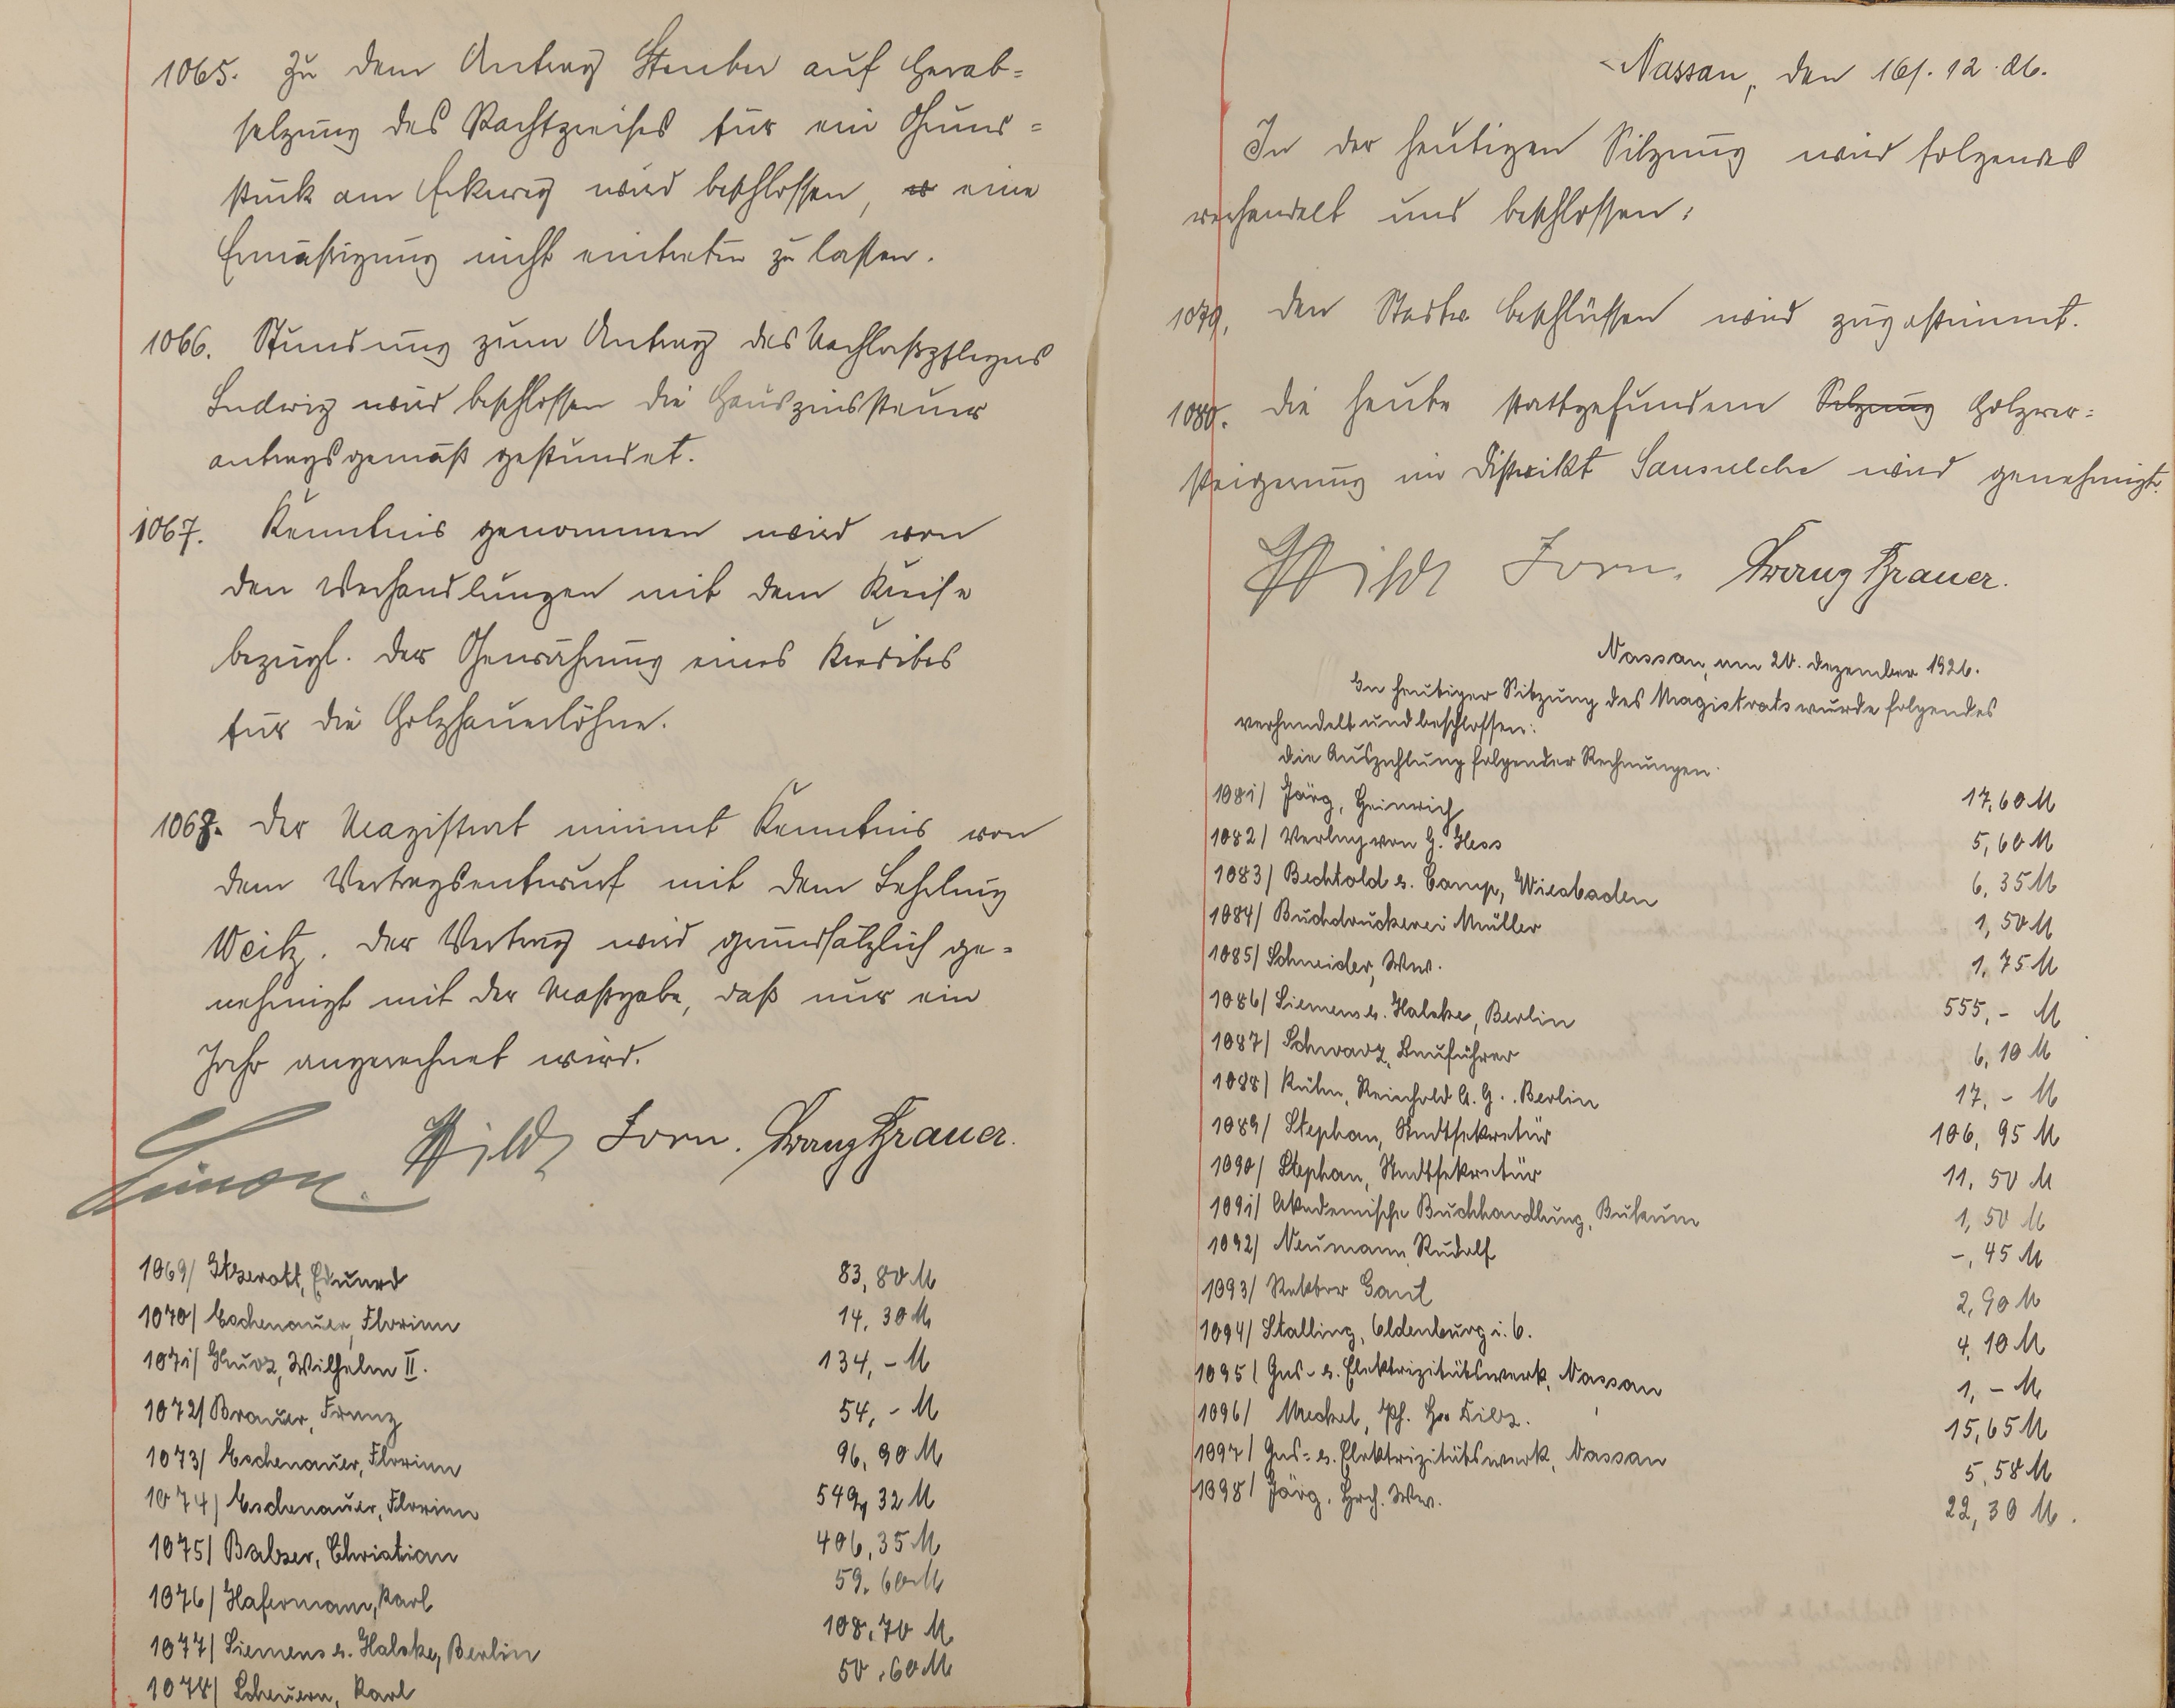 1065. Zu dem Antrag Steuber auf Herab=
setzung des Pachtpreises für ein Grund=
stück am Eckweg wird beschlossen, eine
Ermäßigung nicht eintreten zu lassen.
1066. Stundung zum Antrag des Nachlaßpflegers
Ludwig wird beschlossen die Hauszinssteuer
antragsgemäß gestundet.
1067. Kenntnis genommen wird von
den Verhandlungen mit dem Kreise
bezügl. der Gewährung eines Kredites
für die Holzhauerlöhne.
1068. Der Magistrat nimmt Kenntnis von
dem Vertragsentwurf mit dem Lehrling
Weitz. Der Vertrag wird grundsätzlich ge=
nehmigt mit der Maßgabe, daß nur ein
Jahr angerechnet wird.
Simon. Wild Zorn. Franz Brauer.
1069/ Eduard 83,80 M
1070/ Eschenauer, Florian 14,30 M
1071/ Kurz, Wilhelm II. 134,- M
1072/ Brauer, Franz 54,- M
1073/ Eschenauer, Florian 96,90 M
1074/ Eschenauer, Florian 549,32 M
1075/ Balzer, Christian 406,35 M
1076/ Hafermann, Karl 59,60 M
1077/ Siemens u. Halske, Berlin 108,70 M
1078/ Scheuern, Karl 50,60 M
Nassau, den 16. 12. 26.
In der heutigen Sitzung wird folgendes
verhandelt und beschlossen:
1079. Den Stadtv. beschlüssen wird zugestimmt.
1080. Die heute stattgefundene Sitzung Holzver=
steigerung im Distrikt wird genehmigt.
Wild Zorn. Franz Brauer.
Nassau, am 20. Dezember 1926.
In heutiger Sitzung des Magistrats wurde folgendes
verhandelt und beschlossen:
Die Auszahlung folgender Rechnungen:
1081/ Jörg, Heinrich 17,60 M
1082/ Verlag von G. Hess 5,60 M
1083/ Bechtold u. Comp, Wiesbaden 6,35 M
1084/ Buchdruckerei Müller 1,50 M
1085/ Schneider, Ww. 1,75 M
1086/ Siemens u. Halske, Berlin 555,- M
1087/ Schwarz, Bauführer 6,10 M
1088/ Kühn, Reinhold A.G.. Berlin 17,- M
1089/ Stephan, Stadtsekretär 106,95 M
1090/ Stephan, Stadtsekretär 11,50 M
1091/ Akademische Buchhandlung, 1,50 M
1092/ Neumann, Rudolf -,45 M
1093/ Rektor Gaul 2,90 M
1094/ Stalling, Oldenburg i. O. 4,10 M
1095/ Gas- u. Elektrizitätswerk, Nassau 1,- M
1096/ Meckel, Ph. Hr. Diez. 15,65 M
1097/ Gas- u. Elektrizitätswerk, Nassau 5,58 M
1098/ Jörg, Hrch. Ww. 22,30 M.